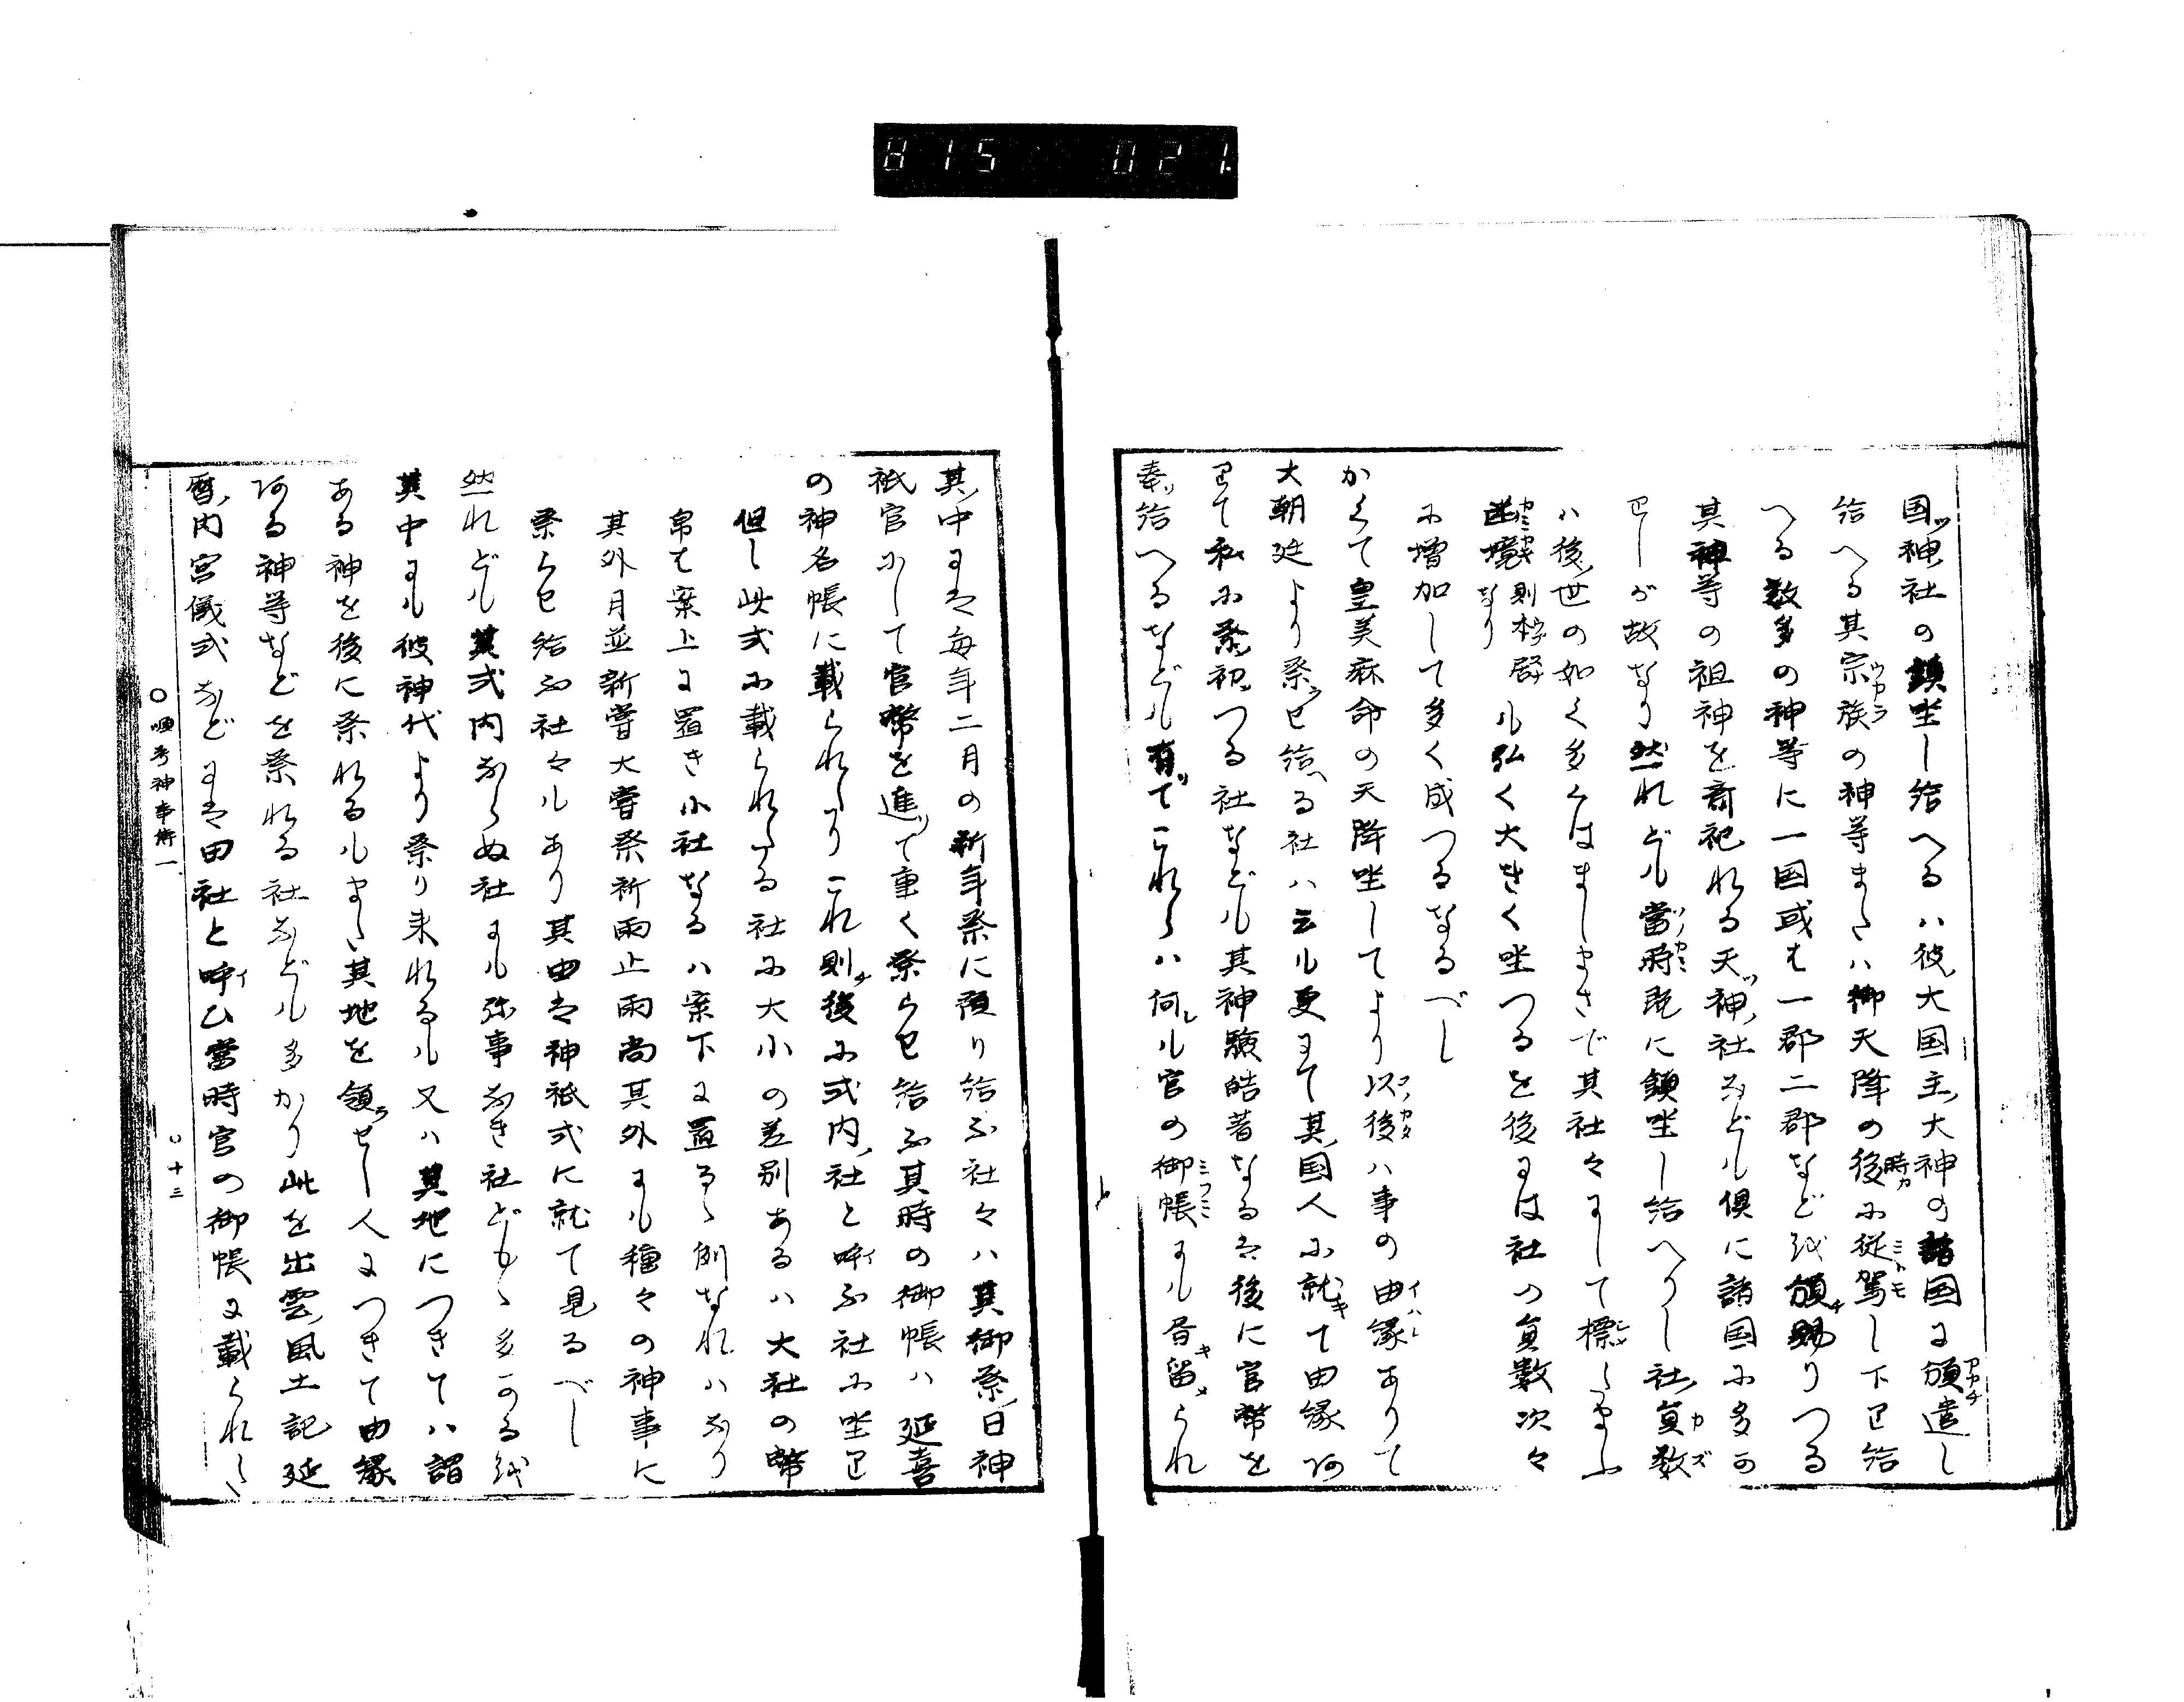 815 021
国ッ神ノ社の鎮坐し給へるハ彼ノ大国主ノ大神の諸国に頒遣し
給へる其宗族の神等またハ御天降の後に従駕し下り給
へる数多の神等に一国或は一郡二郡など頒賜りつる
其神等の祖神を斎祀れる天ッ神ノ社なども倶に諸国に多か
りしが故なり然れども当時既に鎮坐し給へりし社ノ員数
ハ後ノ世の如く多くはましまさで其社々にして標したまふ
神境則村辟なりも弘く大きく坐つるを後には社の員数次々
に増加して多く成つるなるべし
かくて皇美麻命の天降坐してより以後ハ事の由縁ありて
大朝廷より祭らせ給へる社ハ云も更にて其ノ国人に就て由縁あ
りて私に祭初つる社なども其神験皓著なるは後に官幣を
奉り給へるなども有てこれらハ何も官の御帳にも居留られ
其ノ中には毎年二月の祈年祭に預り給ふ社々ハ其御祭ノ日神
祇官にして官幣を進て重く祭らせ給ふ其時の御帳ハ延喜
の神名帳に載られたりこれ則後に式内ノ社と呼ふ社に坐り
但し此式に載られたる社に大小の差別あるハ大社の幣
帛は案上に置き小社なるハ案下に置るゝ例なれハなり
其外月並新嘗大嘗祭祈雨止雨尚其外にも種々の神事に
祭らせ給ふ社々もあり其由は神祇式に就て見るべし
然れども其式内ならぬ社にも弥事なき社どもゝ多かるを
其中にも彼神代より祭り来れるも又ハ其地につきてハ謂
ある神を後に祭れるもまた其地を領せし人につきて由縁
ある神等などを祭れる社なども多かり此を出雲ノ風土記延
暦ノ内宮儀式などには田社と呼ひ当時官の御帳に載られた
〇順考神事伝一 〇十三